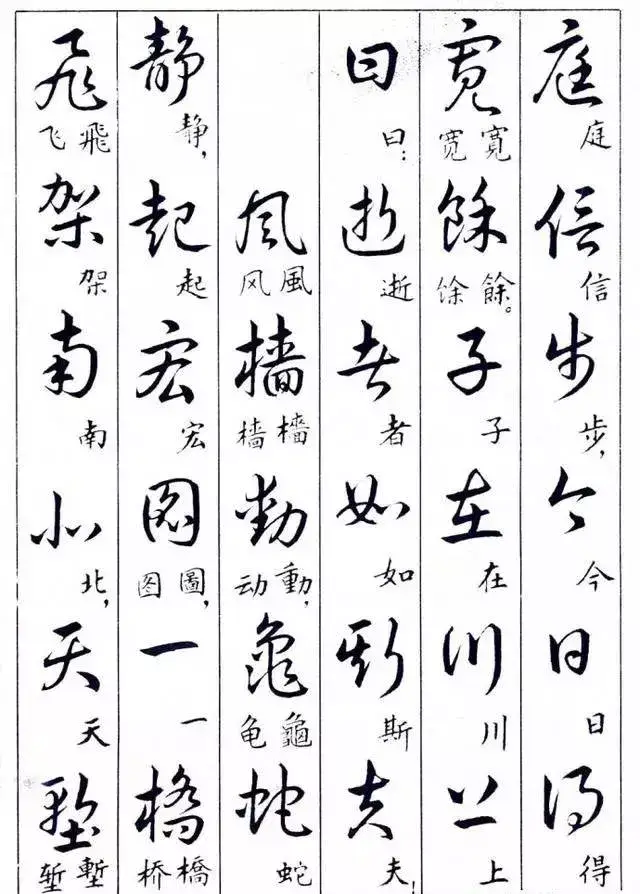 庭 庭 信 信 步 步， 今 今 日 日 得 得
寬 宽寬 餘 馀餘。 子 子 在 在 川 川 上 上
曰 曰： 逝 逝 者 者 如 如 斯 斯 夫 夫！
風 风風 檣 樯檣 動 动動， 龜 龟龜 蛇 蛇
静 静， 起 起 宏 宏 圖 图圖， 一 一 橋 桥橋
飛 飞飛 架 架 南 南 北 北， 天 天 塹 堑塹